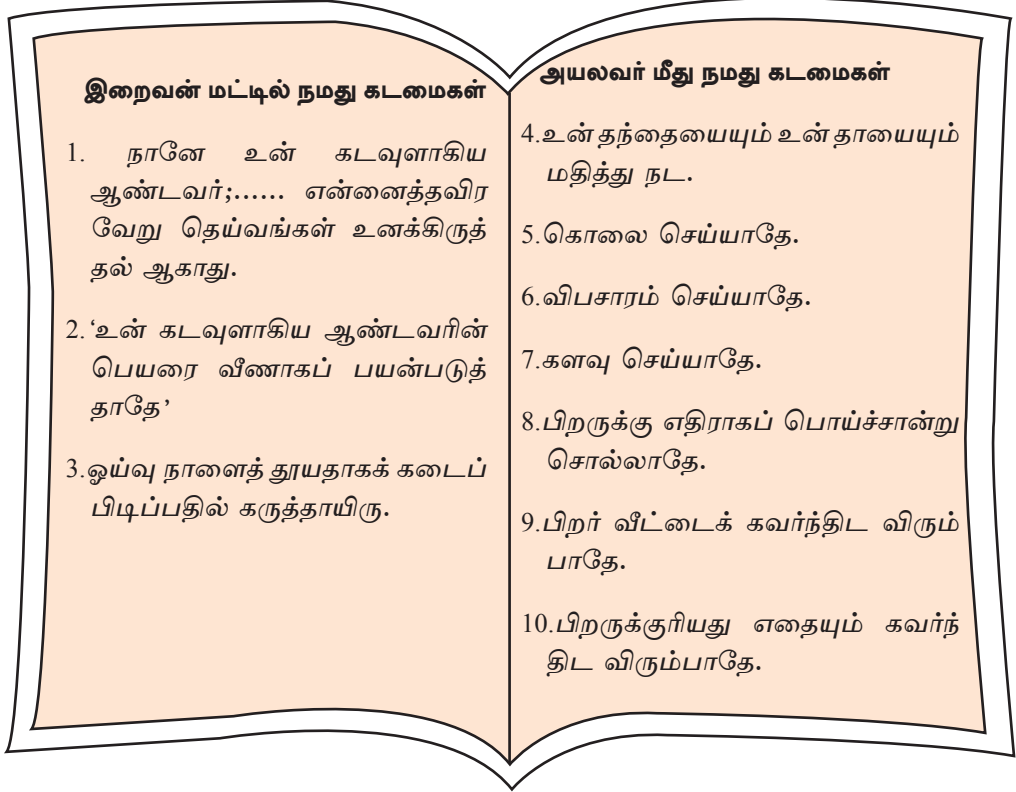 இறைவன் மட்டில் நமது கடமைகள்
1. நானே உன் கடவுளாகிய
ஆண்டவர்;...... என்னைத்தவிர
வேறு தெய்வங்கள் உனக்கிருத்
தல் ஆகாது.
2. ‘உன் கடவுளாகிய ஆண்டவரின்
பெயரை வீணாகப் பயன்படுத்
தாதே’
3.ஓய்வு நாளைத் தூயதாகக் கடைப்
பிடிப்பதில் கருத்தாயிரு.
அயலவர் மீது நமது கடமைகள்
4.உன் தந்தையையும் உன் தாயையும்
மதித்து நட.
5.கொலை செய்யாதே.
6.விபசாரம் செய்யாதே.
7.களவு செய்யாதே.
8.பிறருக்கு எதிராகப் பொய்ச்சான்று
சொல்லாதே.
9.பிறர் வீட்டைக் கவர்ந்திட விரும்
பாதே.
10.பிறருக்குரியது எதையும் கவர்ந்
திட விரும்பாதே.